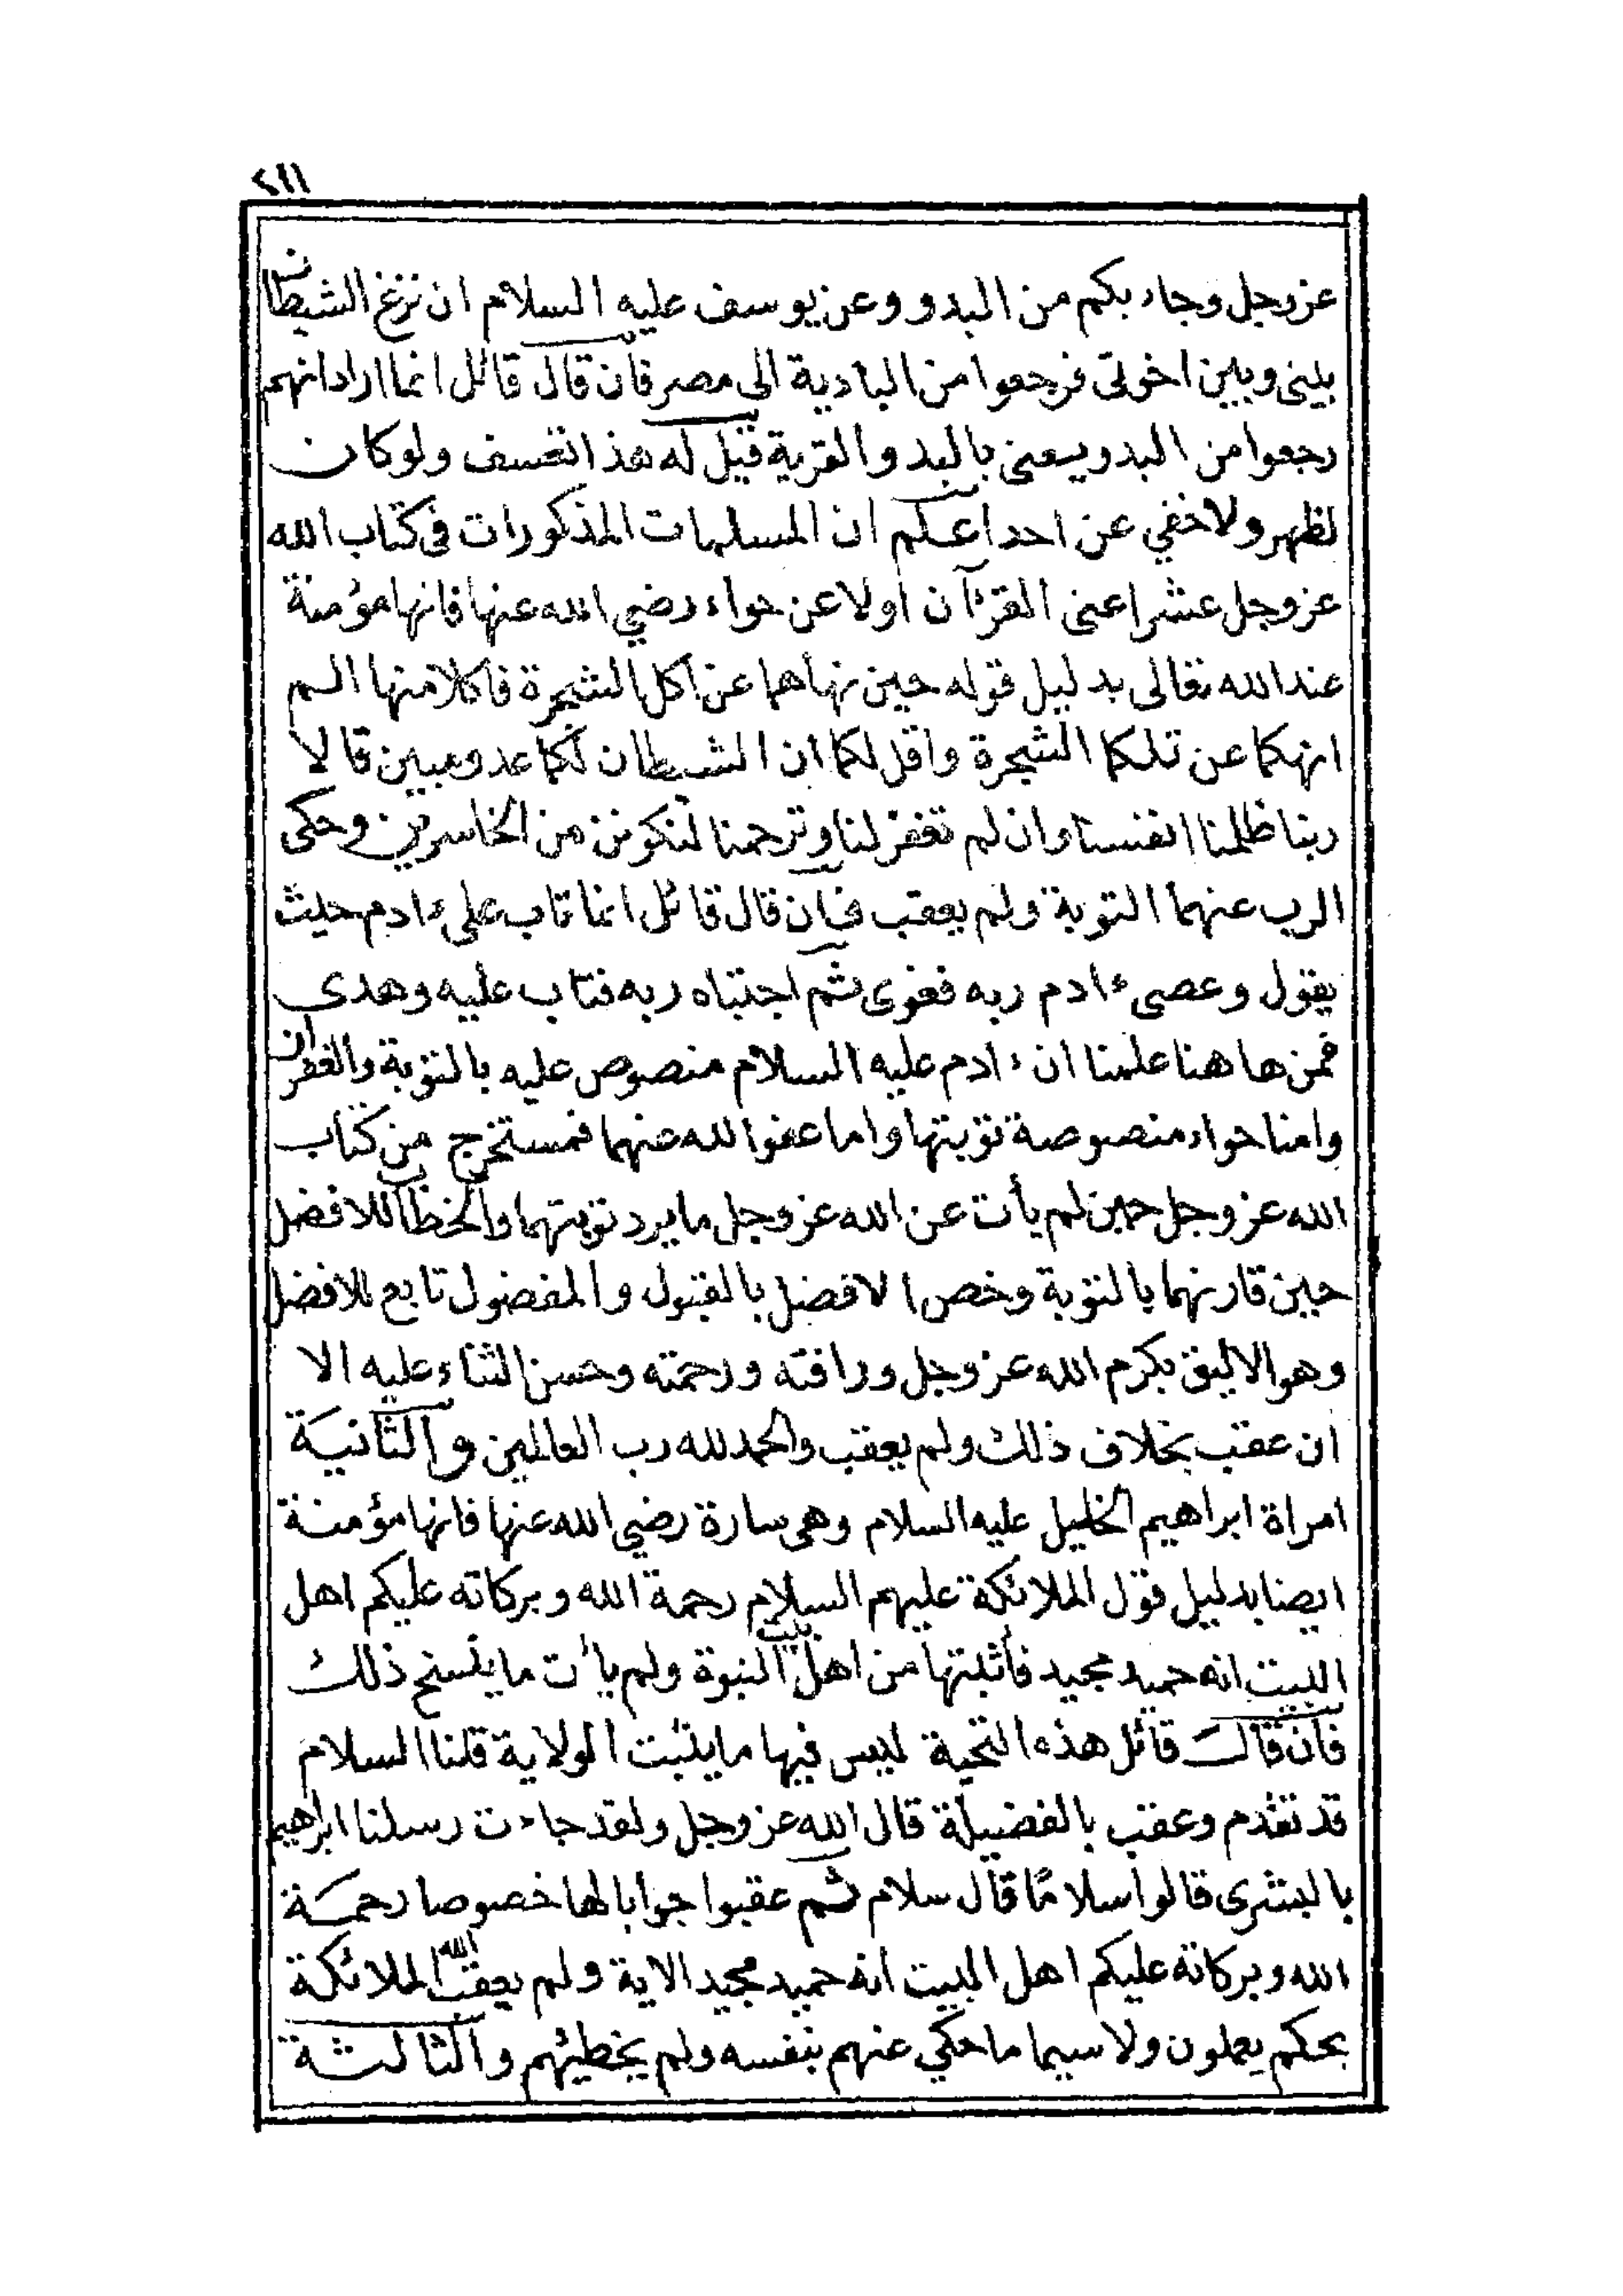 ٢٤١
عز وجل وجاء بكم من البدو وعن يوسف عليه السلام ان نزغ الشيطان
بيني وبين اخوتي فرجعوا من البادية الى مصر فان قال قائل انما اراد انهم
رجعوا من البدو يعني بالبدو القرية قيل له هذا تعسف ولو كان
لظهر ولا خفي عن احد اعلم ان المسلمات المذكورات في كتاب الله
عز وجل عشر اعني القرءآن اولا عن حواء رضي الله عنها فانها مؤمنة
عند الله تعالى بدليل قوله حين نهاهما عن اكل الشجرة فاكلا منها الم
انهكما عن تلكما الشجرة واقل لكما ان الشيطان لكما عدو مبين قالا
ربنا ظلمنا انفسنا وان لم تغفر لنا وترحمنا لنكونن من الخاسرين وحكى
الرب عنهما التوبة ولم يعقب فان قال قائل انما تاب على ءادم حيث
يقول وعصى ءادم ربه فغوى ثم اجتباه ربه فتاب عليه وهدى
فمن هاهنا علمنا ان ءادم عليه السلام منصوص عليه بالتوبة والغفران
وامنا حواء منصوصة توبتها واما عفو الله عنهما فمستخرج من كتاب
الله عز وجل حين لم يأت عن الله عز وجل ما يرد توبتهما والخطاب للافضل
حين قارنهما بالتوبة وخص الافضل بالقبول والمفضول تابع للافضل
وهو الاليق بكرم الله عز وجل ورافته ورحمته وحسن الثناء عليه الا
ان عقب بخلاف ذلك ولم يعقب والحمد لله رب العالمين والثانية
امراة ابراهيم الخليل عليه السلام وهي سارة رضي الله عنها فانها مؤمنة
ايضا بدليل قول الملائكة عليهم السلام رحمة الله وبركاته عليكم اهل
البيت انه حميد مجيد فأثبتها من اهل بيت النبوة ولم يأت ما ينسخ ذلك
فان قالت قائل هذه التحية ليس فيها ما يثبت الولاية قلنا السلام
قد تقدم وعقب بالفضيلة قال الله عز وجل ولقد جاءت رسلنا ابراهيم
بالبشرى قالوا سلامًا قال سلام ثم عقبوا جوابا لها خصوصا رحمة
الله وبركاته عليكم اهل البيت انه حميد مجيد الاية ولم يعقب الله الملائكة
بحكم يعملون ولا سيما ما حكي عنهم بنفسه ولم يخطيئهم والثالثة